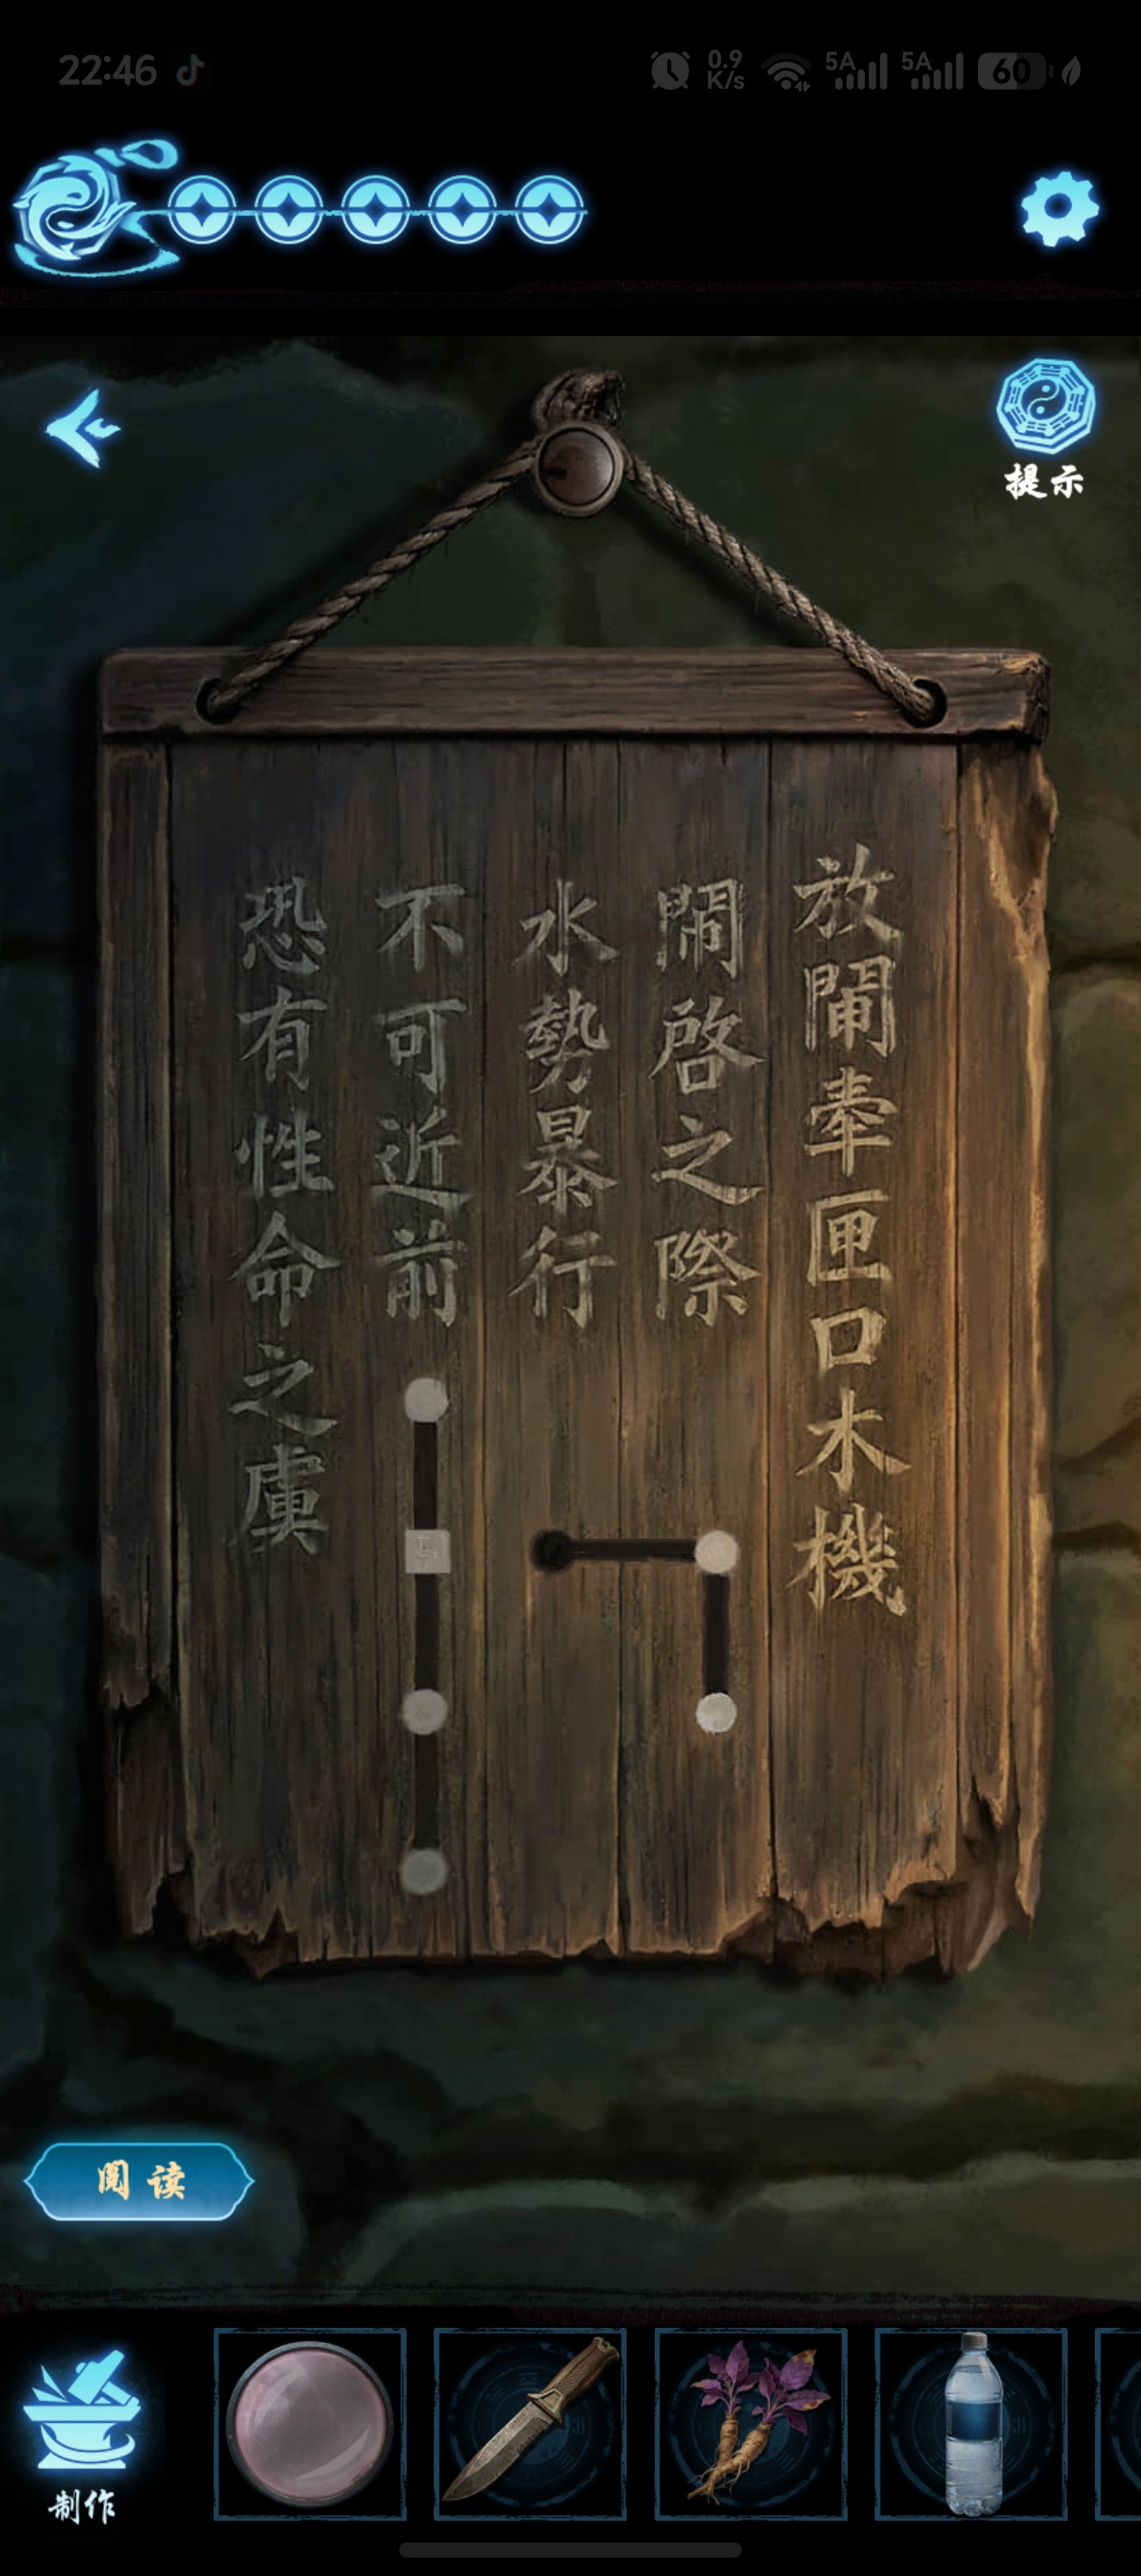 22:46
0.9 K/s
5A
5A
60
提示
放閘牽匣口木機
閘啓之際
水勢暴行
不可近前
恐有性命之虞
阅读
制作